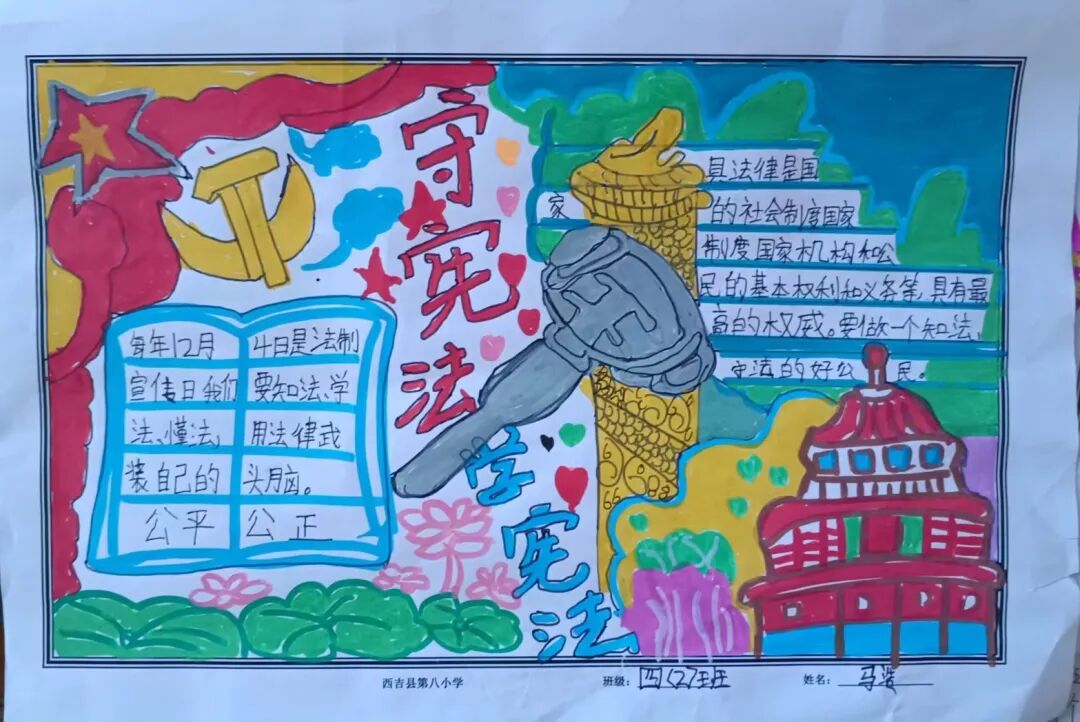 守宪法
学宪法
每年12月 4日是法制
宣传日我们 要知法、学
法、懂法, 用法律武
装自己的 头脑。
公平 公正
具法律是国
家 的社会制度国家
制度国家机构和公
民的基本权利和义务等,具有最
高的权威。要做一个知法、
守法的好公 民。
西吉县第八小学 班级: 四(2)班 姓名: 马浩